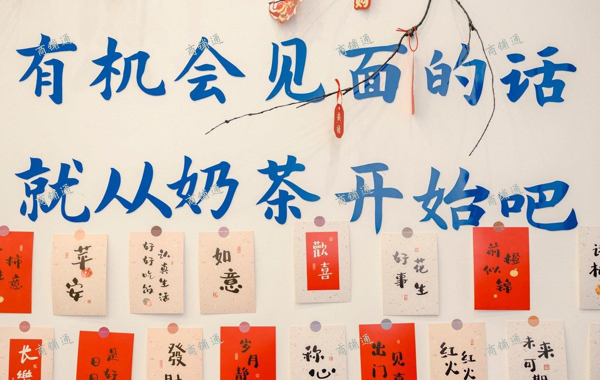 有机会见面的话
就从奶茶开始吧
柿意
苹安
认真生活
好好吃饭
如意
歡喜
花生
好事
前橙
似錦
長樂
是好
日日
發財
岁月
静
称心
见喜
出门
红火
红火
未来
可期
商铺通